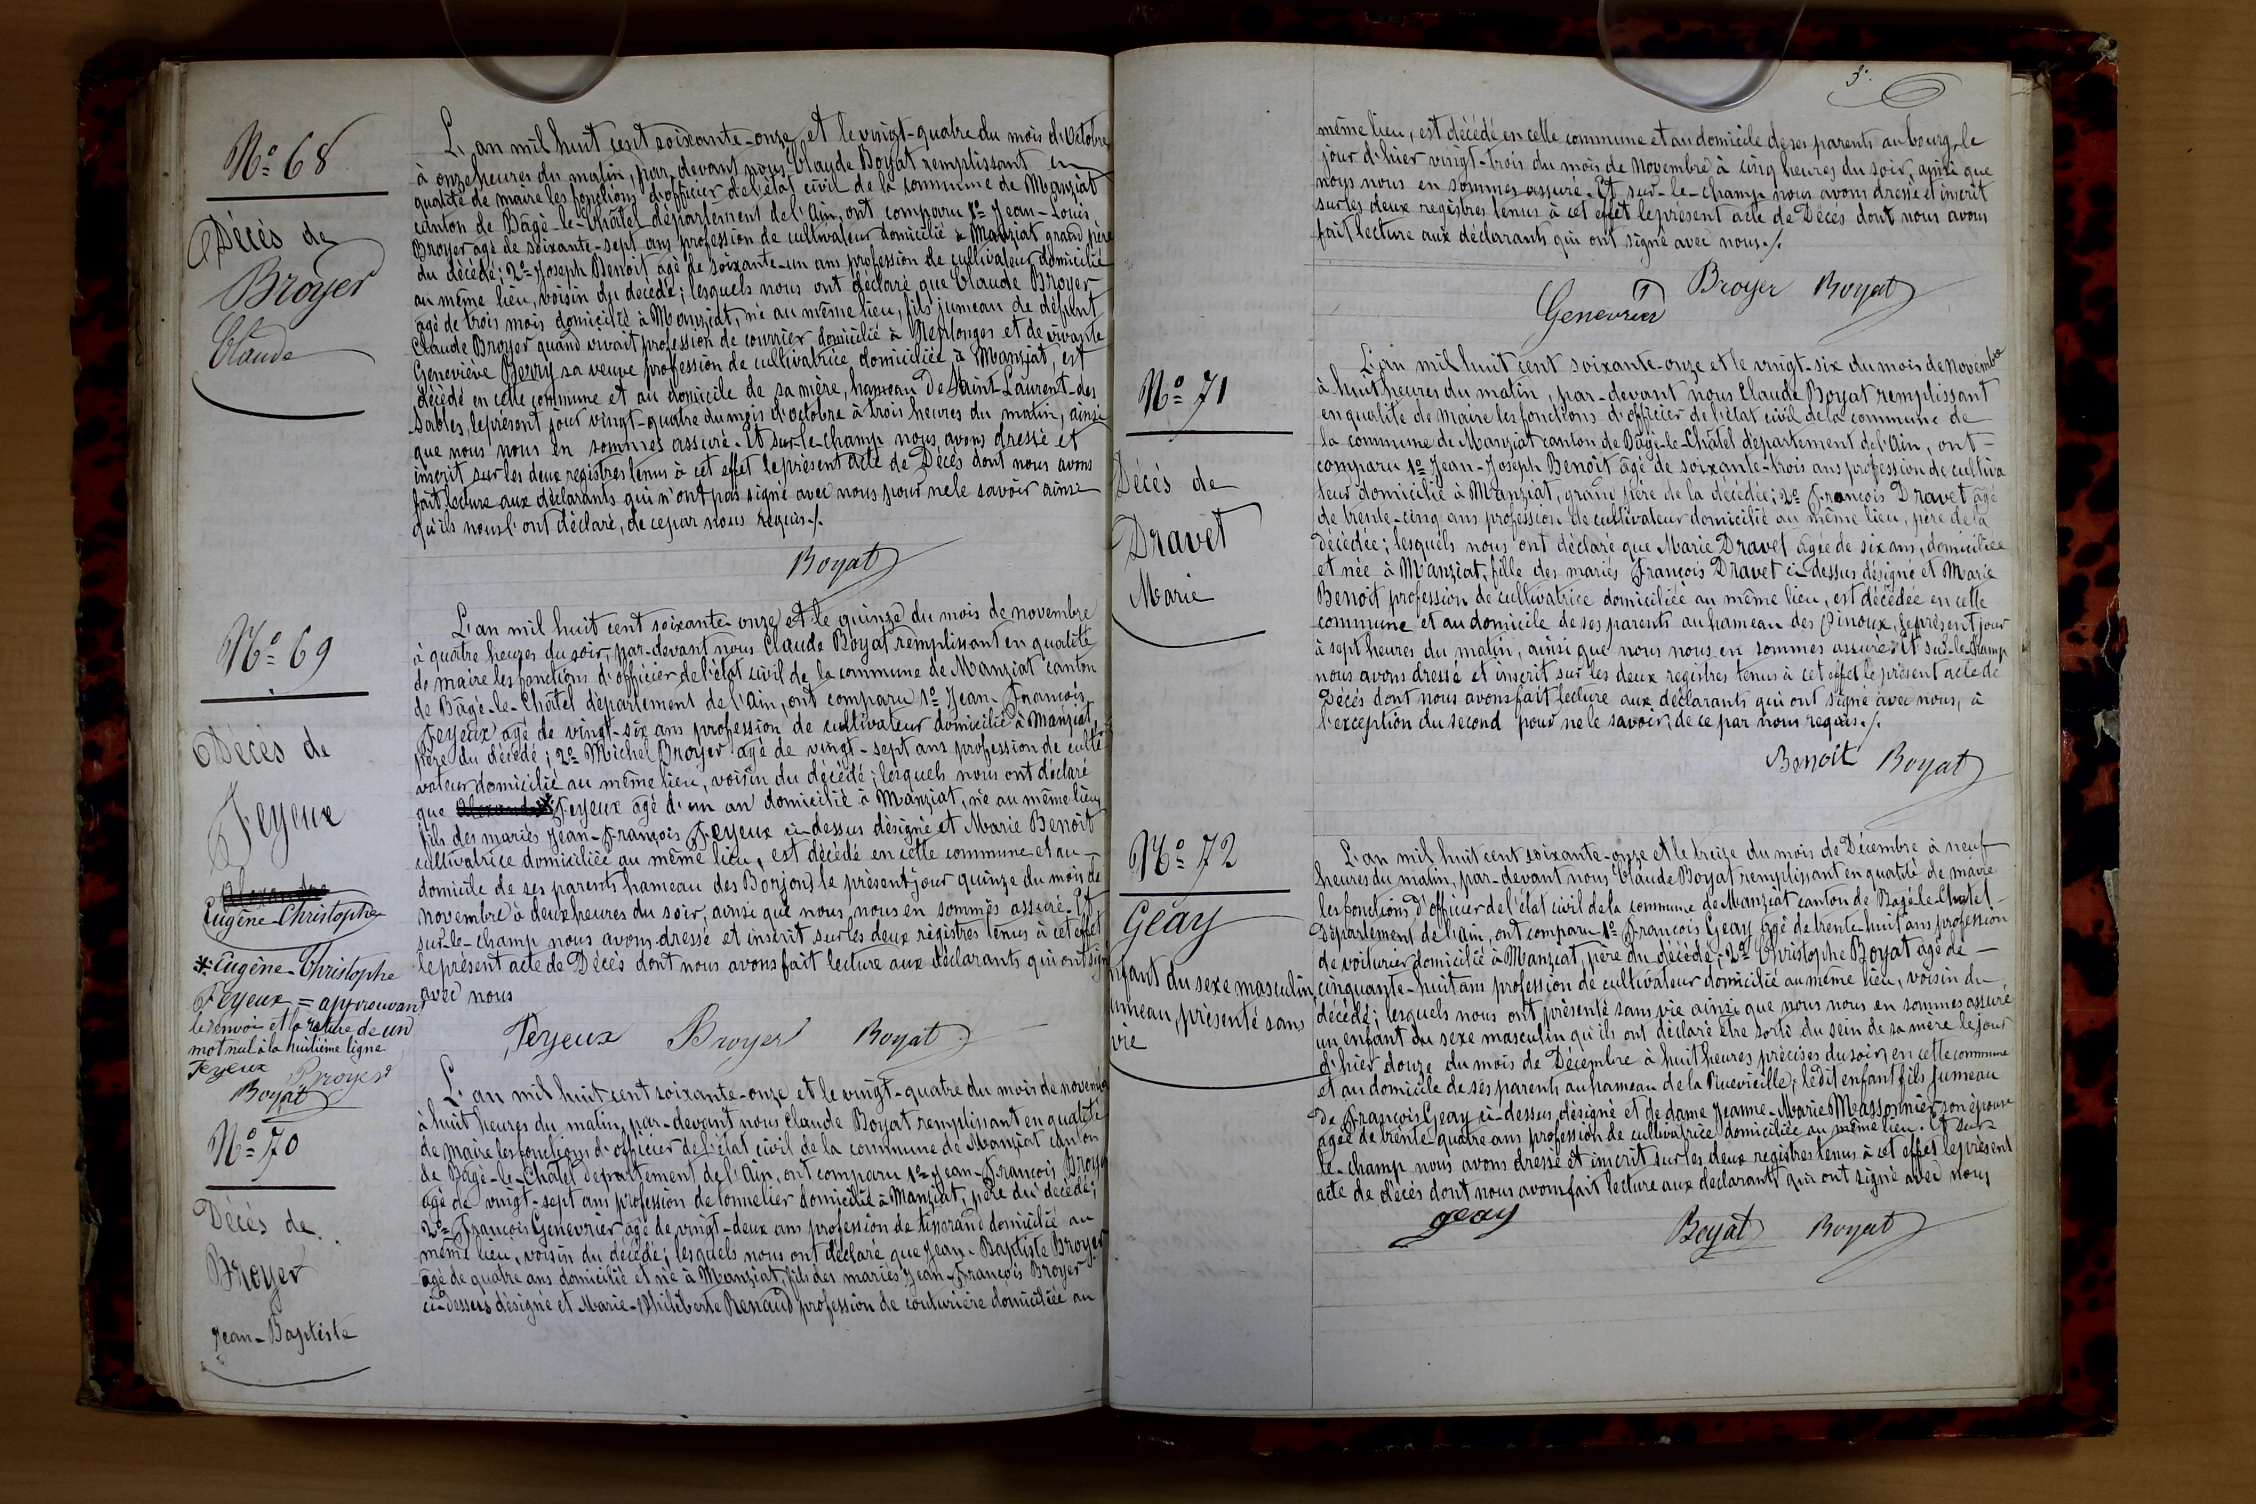 N° 68
Décès de
Broyer
Claude
L'an mil huit cent soixante-onze et le vingt-quatre du mois d'octobre
à onze heures du matin, par-devant nous Claude Boyat remplissant en
qualité de maire les fonctions d'officier de l'état civil de la commune de Manziat
canton de Bâgé-le-Châtel département de l'Ain, ont comparu 1° Jean-Louis
Broyer agé de soixante-sept ans profession de cultivateur domicilié à Manziat grand père
du décédé; 2° Joseph Benoit agé de soixante-un ans profession de cultivateur domicilié
au même lieu, voisin du décédé; lesquels nous ont déclaré que Claude Broyer
agé de trois mois domicilié à Manziat, né au même lieu, fils jumeau de défunt
Claude Broyer quand vivait profession de courrier domicilié à Replonges et de vivante
Geneviève Berry sa veuve profession de cultivatrice domiciliée à Manziat, est
décédé en cette commune et au domicile de sa mère, hameau de Saint-Laurent-des
Sables, le présent jour vingt-quatre du mois d'octobre à trois heures du matin, ainsi
que nous nous en sommes assuré. Et sur-le-champ nous avons dressé et
inscrit sur les deux registres tenus à cet effet le présent acte de Décès dont nous avons
fait lecture aux déclarants qui n'ont pas signé avec nous pour ne le savoir ainsi
qu'ils nous l'ont déclaré, de ce par nous requis./.
Boyat
N° 69
Décès de
Feyeux
Alexandre
Eugène-Christophe
* Eugène-Christophe
Feyeux = approuvant
le renvoi et la rature de un
mot nul à la huitième ligne
Feyeux Broyer
Boyat
L'an mil huit cent soixante-onze et le quinze du mois de novembre
à quatre heures du soir, par-devant nous Claude Boyat remplissant en qualité
de maire les fonctions d'officier de l'état civil de la commune de Manziat canton
de Bâgé-le-Châtel département de l'Ain, ont comparu 1° Jean-François
Feyeux agé de vingt-six ans profession de cultivateur domicilié à Manziat,
père du décédé; 2° Michel Broyer agé de vingt-sept ans profession de culti
vateur domicilié au même lieu, voisin du décédé; lesquels nous ont déclaré
que Alexandre * Feyeux agé d'un an domicilié à Manziat, né au même lieu
fils des mariés Jean-François Feyeux ci-dessus désigné et Marie Benoit
cultivatrice domiciliée au même lieu, est décédé en cette commune et au
domicile de ses parents hameau des Borjons le présent jour quinze du mois de
novembre à deux heures du soir, ainsi que nous nous en sommes assuré. Et
sur-le-champ nous avons dressé et inscrit sur les deux régistres tenus à cet effet
le présent acte de Décès dont nous avons fait lecture aux déclarants qui ont signé
avec nous
Feyeux Broyer Boyat
N° 70
Décès de
Broyer
Jean-Baptiste
L'an mil huit cent soixante-onze et le vingt-quatre du mois de novembre
à huit heures du matin, par-devant nous Claude Boyat remplissant en qualité
de maire les fonctions d'officier de l'état civil de la commune de Manziat canton
de Bâgé-le-Châtel département de l'Ain, ont comparu 1° Jean-François Broyer
agé de vingt-sept ans profession de tonnelier domicilié à Manziat, père du décédé;
2° François Genevrier agé de vingt-deux ans profession de tisserand domicilié au
même lieu, voisin du décédé; lesquels nous ont déclaré que Jean-Baptiste Broyer
agé de quatre ans domicilié et né à Manziat, fils des mariés Jean-François Broyer
ci-dessus désigné et Marie-Philiberte Renaud profession de couturière domiciliée au
3°.
même lieu, est décédé en cette commune et au domicile de ses parents au bourg, le
jour d'hier vingt-trois du mois de Novembre à cinq heures du soir, ainsi que
nous nous en sommes assuré. Et sur-le-champ nous avons dressé et inscrit
sur les deux registres tenus à cet effet le présent acte de Décès dont nous avons
fait lecture aux déclarants qui ont signé avec nous./.
Genevrier Broyer Boyat
N° 71
Décès de
Dravet
Marie
L'an mil huit cent soixante-onze et le vingt-six du mois de novembre
à huit heures du matin, par-devant nous Claude Boyat remplissant
en qualité de maire les fonctions d'officier de l'état civil de la commune de
la commune de Manziat canton de Bâgé-le-Châtel département de l'Ain, ont-
comparu 1° Jean-Joseph Benoît agé de soixante-trois ans profession de cultiva
teur domicilié à Manziat, grand père de la décédée; 2° François Dravet agé
de trente-cinq ans profession de cultivateur domicilié au même lieu, père de la
décédée; lesquels nous ont déclaré que Marie Dravet agée de six ans, domiciliée
et née à Manziat, fille des mariés François Dravet ci-dessus désigné et Marie
Benoît profession de cultivatrice domiciliée au même lieu, est décédée en cette
commune et au domicile de ses parents au hameau des Pinoux, le présent jour
à sept heures du matin, ainsi que nous nous en sommes assuré. Et sur-le-champ
nous avons dressé et inscrit sur les deux registres tenus à cet effet le présent acte de
Décès dont nous avons fait lecture aux déclarants qui ont signé avec nous, à
l'exception du second pour ne le savoir, de ce par nous requis./.
Benoît Boyat
N° 72
Géay
enfant du sexe masculin
jumeau, présenté sans
vie
L'an mil huit cent soixante-onze et le treize du mois de Décembre à neuf
heures du matin, par-devant nous Claude Boyat remplissant en qualité de maire
les fonctions d'officier de l'état civil de la commune de Manziat canton de Bagé-le-Chatel-
Département de l'ain, ont comparu 1° François Geay agé de trente-huit ans profession
de voiturier domicilié à Manziat, père du décédé; 2° Christophe Boyat agé de-
cinquante-huit ans profession de cultivateur domicilié au même lieu, voisin du
décédé; lesquels nous ont présenté sans vie ainsi que nous nous en sommes assuré
un enfant du sexe masculin qu'ils ont déclaré être sorti du sein de sa mère le jour
d'hier douze du mois de Décembre à huit heures précises du soir, en cette commune
et au domicile de ses parents au hameau de la Ruevieille, ledit enfant fils Jumeau
de François Geay ci-dessus désigné et de dame Jeanne-Marie Massonnier son épouse
agée de trente quatre ans profession de cultivatrice domiciliée au même lieu. Et sur
le-champ nous avons dressé et inscrit sur les deux registres tenus à cet effet le présent
acte de décès dont nous avons fait lecture aux déclarants qui ont signé avec nous
geay Boyat Boyat